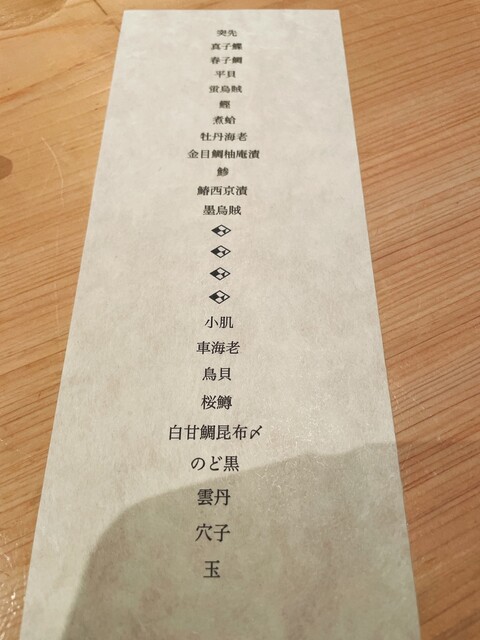 突先
真子鰈
春子鯛
平貝
蛍烏賊
鰹
煮蛤
牡丹海老
金目鯛柚庵漬
鯵
鰆西京漬
墨烏賊
小肌
車海老
鳥貝
桜鱒
白甘鯛昆布〆
のど黒
雲丹
穴子
玉